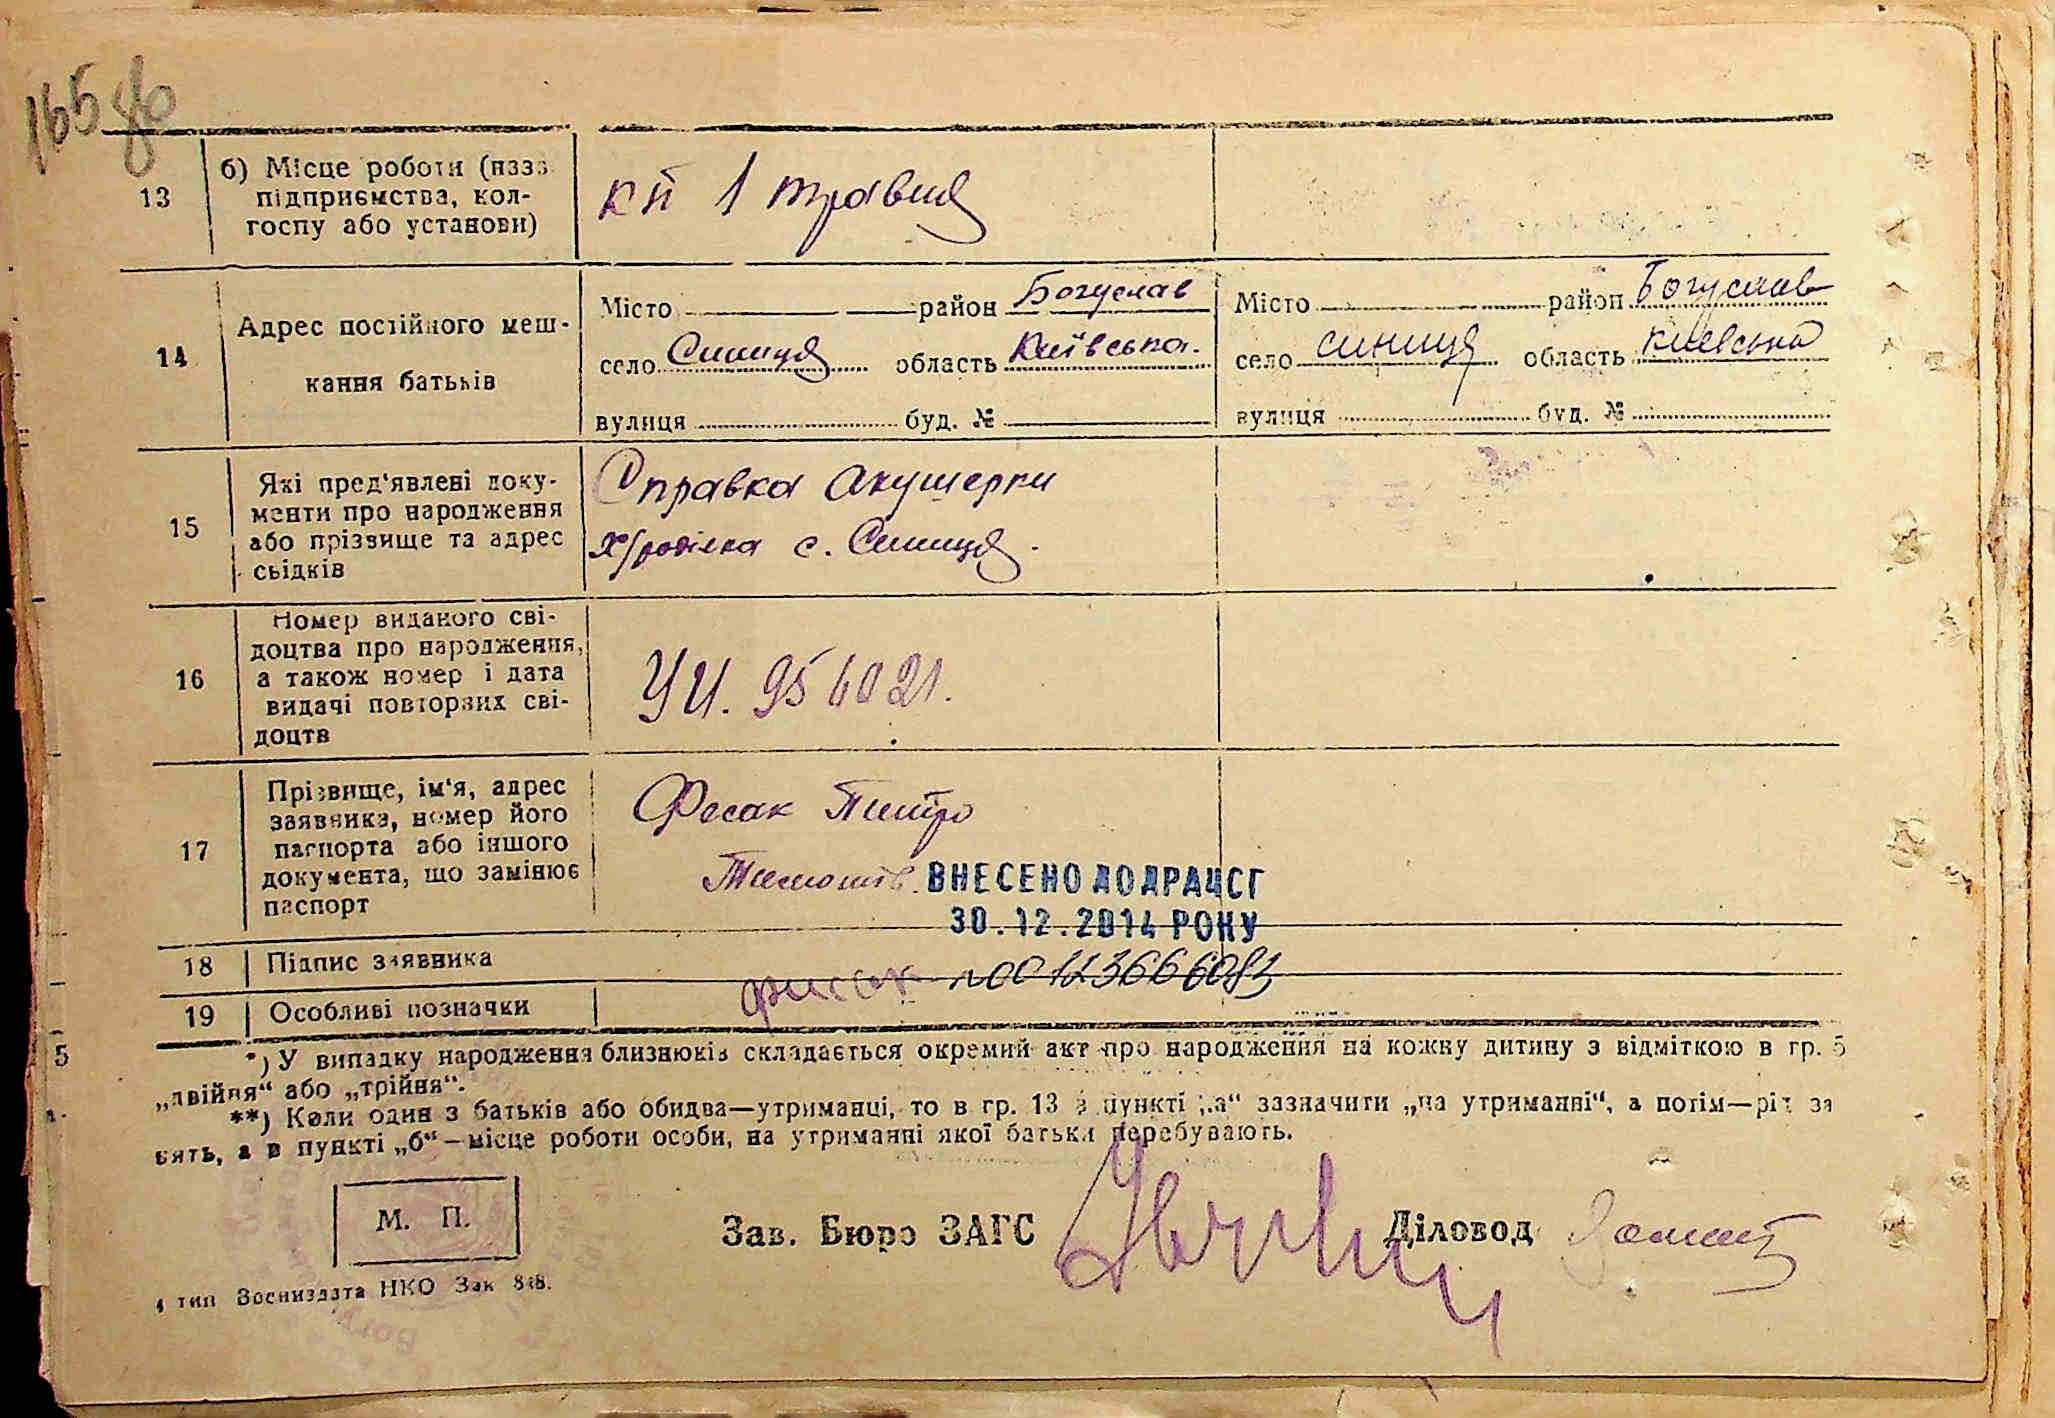 165 зв
13
б) Місце роботи (назв
підприємства, кол-
госпу або установи)
кп 1 травня
14
Адрес постійного меш-
кання батьків
Місто район Богуслав
село Синиця область Київська.
вулиця буд. №
Місто район Богуслав
село синиця область киевська
вулиця буд. №
15
Які пред'явлені доку-
менти про народження
або прізвище та адрес
свідків
Справка Акушерки
с. Синиця.
16
Номер виданого сві-
доцтва про народження,
а також номер і дата
видачі повторних сві-
доцтв
УИ. 956021.
17
Прізвище, ім'я, адрес
заявника, номер його
паспорта або іншого
документа, що замінює
паспорт
Фесак Питро
Тимошів.
ВНЕСЕНО ДО ДРАЦСГ
30.12.2014 РОКУ
18
Підпис заявника
фисак №00123666083
19
Особливі позначки
5
*) У випадку народження близнюків складається окремий акт про народження на кожну дитину з відміткою в гр. 5
„двійня“ або „трійня“.
**) Коли один з батьків або обидва—утриманці, то в гр. 13 в пункті „а“ зазначити „на утриманні“, а потім—рід за
нять, а в пункті „б“—місце роботи особи, на утриманні якої батьки перебувають.
М. П.
Зав. Бюро ЗАГС
Діловод
4 тип Воениздата НКО Зак 848.